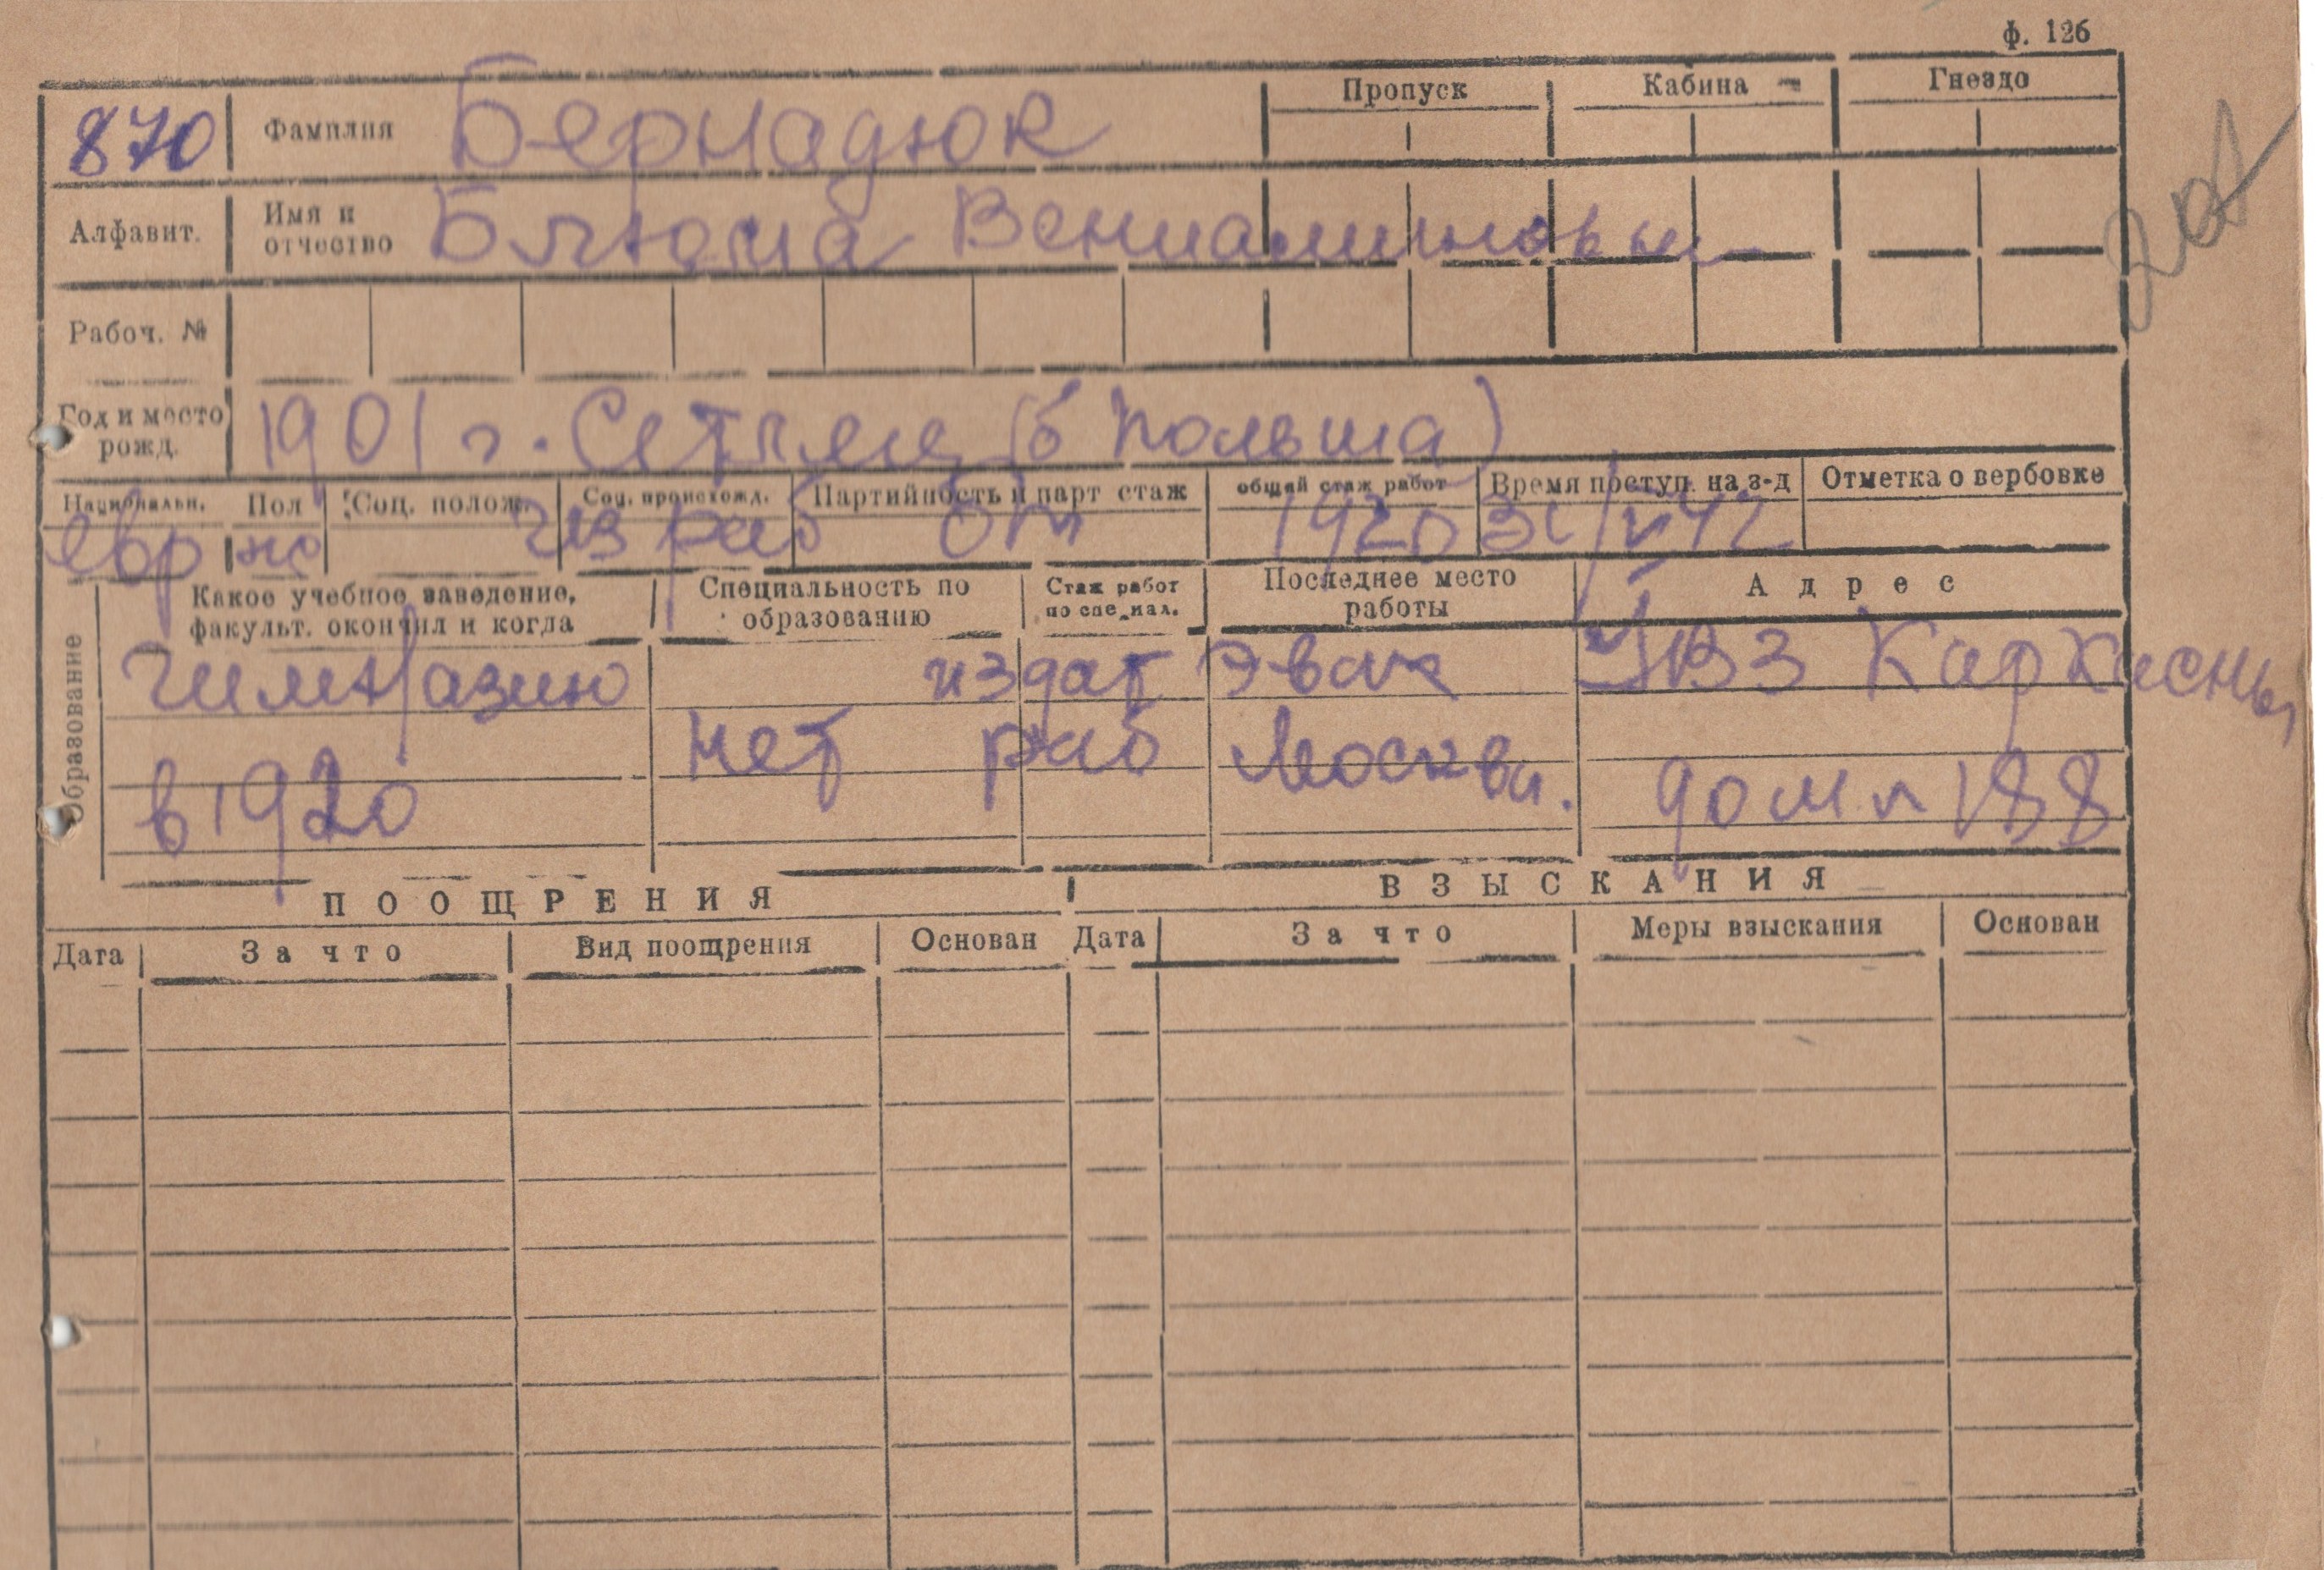 ф. 126
870 Фамилия Бернадюк Пропуск Кабина Гнездо
Алфавит. Имя и отчество Блюма Вениаминовы
Рабоч. №
Год и место рожд. 1901 г. (б Польша)
Национальн. Пол Соц. полож. Соц. происхожд. Партийность и парт стаж общий стаж работ Время поступ. на з-д Отметка о вербовке
евр ж из раб 1920
Образование
Какое учебное заведение, факульт. окончил и когда Специальность по образованию Стаж работ по специал. Последнее место работы Адрес
гимназию издат Эвак УВЗ Каркасны
в 1920 нет раб Москвы. дом № 188
ПООЩРЕНИЯ ВЗЫСКАНИЯ
Дата За что Вид поощрения Основан Дата За что Меры взыскания Основан